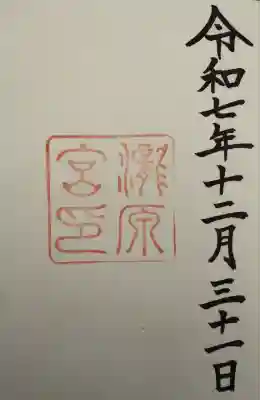 令和七年十二月三十一日
瀧原
宮印